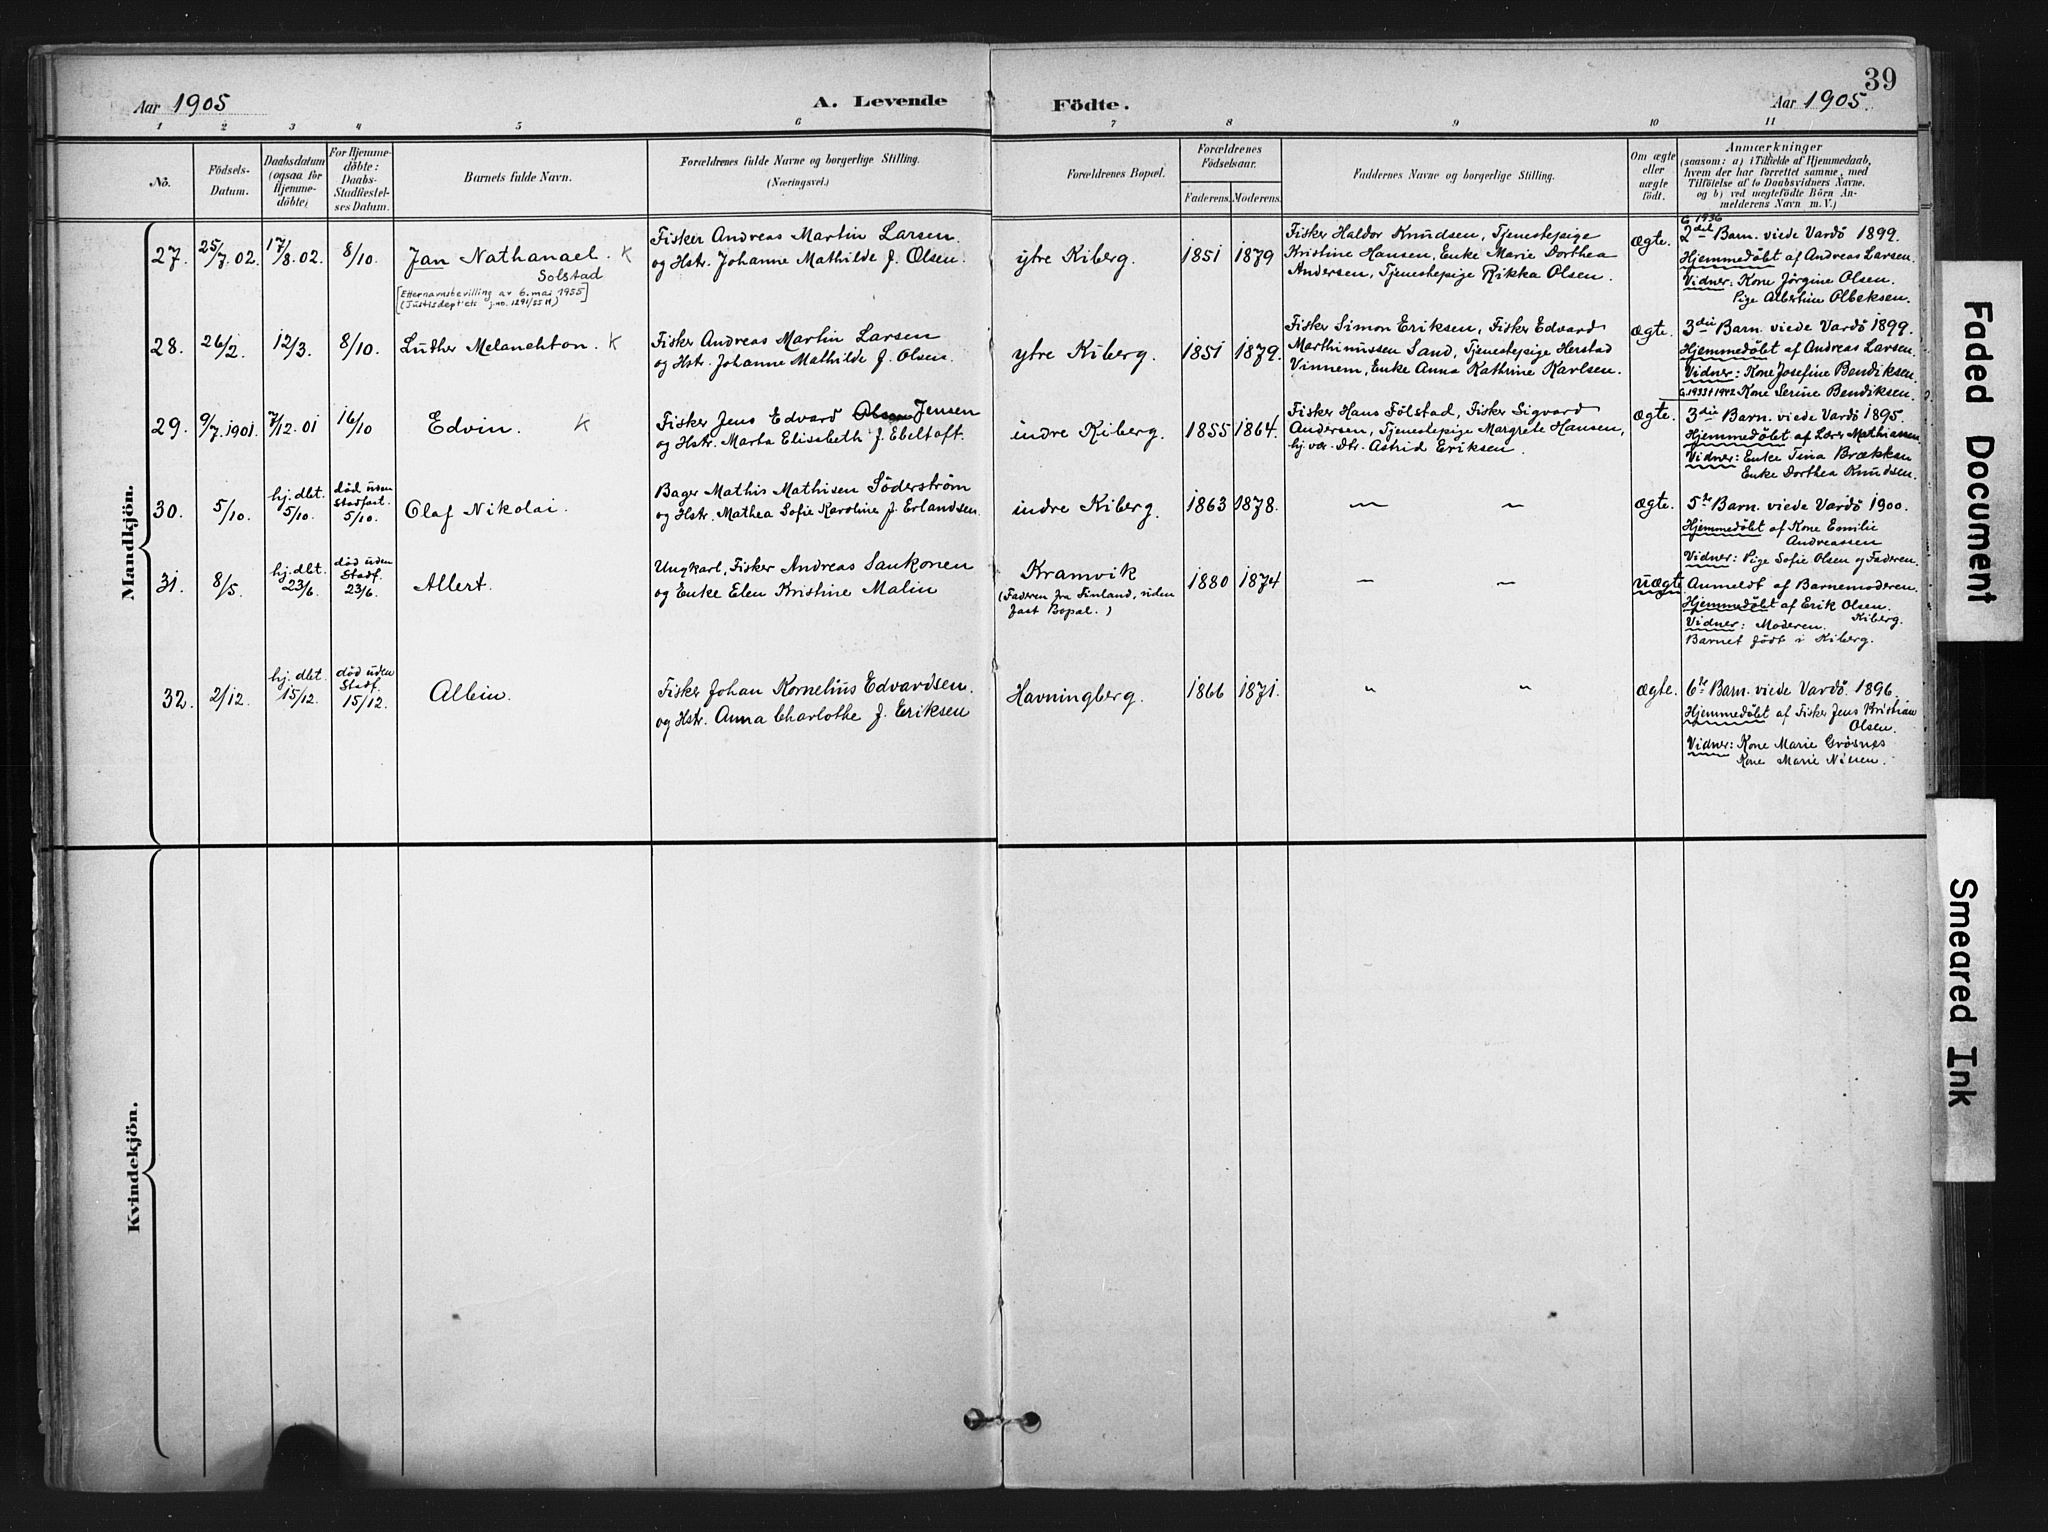 39
Aar 1905
A. Levende
Födte.
Aar 1905.
1 2 3 4 5 6 7 8 9 10 11
No.
Födsels-
Datum.
Daabsdatum
(ogsaa for
Hjemme-
döbte)
For Hjemme-
döbte:
Daabs-
Stadfæstel-
ses Datum.
Barnets fulde Navn.
Forældrenes fulde Navne og borgerlige Stilling.
(Næringsvei.)
Forældrenes Bopæl.
Forældrenes
Födselsaar.
Faderens. Moderens.
Faddernes Navne og borgerlige Stilling.
Om ægte
eller
uægte
födt.
Anmærkninger
(saasom: a) i Tilfælde af Hjemmedaab,
hvem der har forrettet samme, med
Tilföielse af to Daabsvidners Navne,
og b) ved uægtefödte Börn An-
melderens Navn m. V.)
Mandkjön.
27. 25/7.02. 17/8.02. 8/10. Jan Nathanael. K
Solstad
[Etternavnsbevilling av 6. mai 1955]
(Justisdept'ets j.no. 1291/55 M)
Fisker Andreas Martin Larsen.
og Hstr. Johanne Mathilde f. Olsen.
ytre Kiberg. 1851 1879
Fisker Haldor Knudsen, Tjenestepige
Kristine Hansen, Enke Marie Dorthea
Andersen, Tjenestepige Rikka Olsen.
Ægte.
G 1936
2det Barn. viede Vardö 1899.
Hjemmedöbt af Andreas Larsen.
Vidner: Kone Jörgine Olsen.
Pige Albertine Olbeksen.
28. 26/2. 12/3. 8/10. Luther Melanchton. K
Fisker Andreas Martin Larsen
og Hstr. Johanne Mathilde f. Olsen.
ytre Kiberg. 1851 1879.
Fisker Simon Eriksen, Fisker Edvard
Marthinussen Sand, Tjenestepige Herstad
Vinnem, Enke Anna Kathrine Karlsen.
Ægte.
3die Barn. viede Vardö 1899.
Hjemmedöbt af Andreas Larsen.
Vidner: Kone Josefine Bendiksen.
G. 1933 1942 Kone Serine Bendiksen.
29. 9/7.1901. 7/12.01 16/10 Edvin. K
Fisker Jens Edvard Olsen Jensen
og Hstr. Marta Elisabeth f. Ebeltoft.
indre Kiberg. 1855 1864.
Fisker Hans Fölstad, Fisker Sigvard
Andersen, Tjenestepige Margrete Hansen,
hj.vær. Dtr. Astrid Eriksen.
Ægte.
3die Barn. viede Vardö 1895.
Hjemmedöbt af Lærer Mathiassen
Vidner: Enke Tina Brækkan
Enke Dorthea Knudsen.
30. 5/10. hj. dbt. 5/10. død uden Stadfæst. 5/10. Olaf Nikolai.
Bager Mathis Mathisen Söderström
og Hstr. Mathea Sofie Karoline f. Erlandsen.
indre Kiberg. 1863 1878. — — Ægte.
5te Barn. viede Vardö 1900.
Hjemmedöbt af Kone Emilie
Andreassen
Vidner: Pige Sofie Olsen og Faderen.
31. 8/5. hj. dbt. 23/6. død uden Stadf. 23/6. Allert.
Ungkarl, Fisker Andreas Sankonen
og Enke Elen Kristine Malin
Kramvik
(Faderen fra Finland, uden
fast Bopæl.)
1880 1874 — — Uægte
Anmeldt af Barnemoderen.
Hjemmedöbt af Erik Olsen.
Kiberg.
Vidner: Moderen.
Barnet födt i Kiberg.
32. 2/12. hj. dbt. 15/12. død uden Stadf. 15/12. Albin.
Fisker Johan Kornelius Edvardsen.
og Hstr. Anna Charlothe f. Eriksen
Havningberg. 1866 1871. " " Ægte.
6te Barn. viede Vardö. 1896.
Hjemmedöbt af Fisker Jens Kristian
Olsen.
Vidner: Kone Marie Grösnes
Kone Marie Nilsen.
Kvindekjön.
Faded Document
Smeared Ink